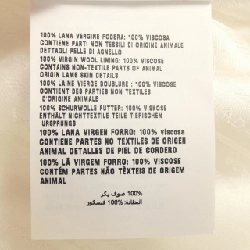 100% LANA VERGINE FODERA: 100% VISCOSA
CONTIENE PARTI NON TESSILI DI ORIGINE ANIMALE
DETTAGLI PELLE DI AGNELLO
100% VIRGIN WOOL LINING: 100% VISCOSE
CONTAINS NON-TEXTILE PARTS OF ANIMAL
ORIGIN LAMB SKIN DETAILS
100% LAINE VIERGE DOUBLURE : 100% VISCOSE
CONTIENT DES PARTIES NON TEXTILES
D'ORIGINE ANIMALE
100% SCHURWOLLE FUTTER: 100% VISKOSE
ENTHÄLT NICHTTEXTILE TEILE TIERISCHEN
URSPRUNGS
100% LANA VIRGEN FORRO: 100% VISCOSE
CONTIENE PARTES NO TEXTILES DE ORIGEN
ANIMAL DETALLES DE PIEL DE CORDERO
100% LÃ VIRGEM FORRO: 100% VISCOSE
CONTÉM PARTES NÃO TÊXTEIS DE ORIGEM
ANIMAL
100% صوف بكر
البطانة: 100% فيسكوز